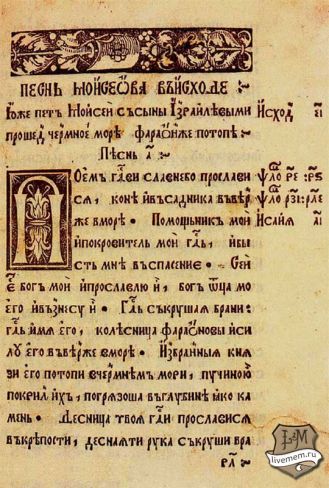 ПЕСНЬ МОЙСЕѠВА ВЪИСХОДЕ
Юже петъ Мойсей съсыны Ізраилѣвыми
Исход҃ е҃і
прошед чермное море фараѡнже потопѣ
Песнь а҃
Поем гдⷭ҇ви славнебо прославис
я, конѣ ивъсадника въвѣр
же вморѣ • Помощьникъ мой
Исаия в҃і
ипокровитель мой гдⷭ҇ь, ибы
сть мнѣ въспасение • Сей
же богъ мой ипрославлю й, богъ ѿца мо
его ивъзнесу й • Гдⷭ҇ь съкрушая брани
гдⷭ҇ь имя его, колѣсница фараѡновы иси
лу его въвѣрже вморѣ • Избранныя кня
зи его потопи вчермнѣм мори, пучиною
покрил ихъ, погрязоша въглубинѣ яко ка
мень • Десница твоя гдⷭ҇и прославися
въкрѣпости, десная ти рука съкруши вра
гы
livemem.ru